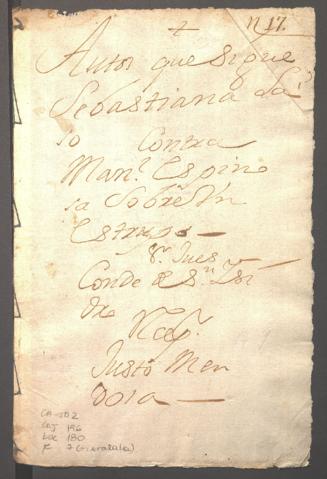 n 17.
+
Autos que sigue
Sebastiana La
so Contra
Man.l Espino
sa Sobre Un
Estrupo —
S.r Jues
Conde de S.n Isi
dro
Justo Men
dosa —
CA-JO2
CAJ 196
LEG 180
F 7 (+ carátula)